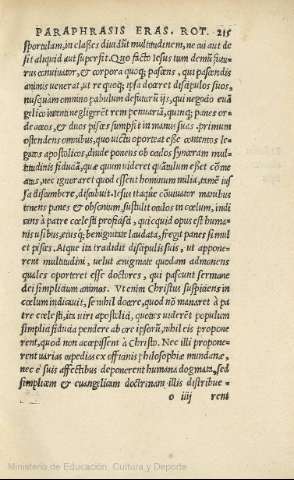 PARAPHRASIS ERAS. ROT. 215
sportulam, in classes diuidūt multitudinem, ne cui aut de
sit aliquid aut supersit. Quo facto Iesus tum demū futu
rus conuiuator, & corpora quoq; pascens, qui pascendis
animis uenerat, ut re quoq; ipsa doceret discipulos suos,
nusquam omnino pabulum defuturū ijs, qui negocio euā
gelico intenti negligerēt rem penuariā, quinq; panes or-
deaceos, & duos pisces sumpsit in manus suas: primum
ostendens omnibus, quo uictu oporteat esse cōtentos le-
gatos apostolicos, deinde ponens ob oculos
titudinis fiduciā, quæ quum uideret quātulum esset cōme
atus, nec ignoraret quod essent hominum milia, tamē ius
sa discumbere, discubuit. Iesus itaque cōuiuator manibus
tenens panes & obsonium, sustulit oculos in cœlum, indi
cans à patre cœlesti proficisci, quicquid opus est huma-
nis usibus, eiusq; benignitate laudata, fregit panes simul
et pisces. Atque ita tradidit discipulis suis, ut appone-
rent multitudini, uelut ænigmate quodam admonens
quales oporteret esse doctores, qui pascunt sermone
dei simplicium animas. Vt enim Christus suspiciens in
cœlum indicauit, se nihil docere, quod nō manaret à pa
tre cœlesti, ita uiri apostolici, quoties uiderent populum
simplici fiducia pendere ab ore ipsorū, nihil eis propone
rent, quod non accepissent à Christo. Nec illi propone-
rent uarias cupedias ex officinis philosophiæ mundanæ,
nec è suis affectibus deponerent humana dogmata, sed
simplicem & euangelicam doctrinam illis distribue-
o iiij rent
Ministerio de Educación, Cultura y Deporte